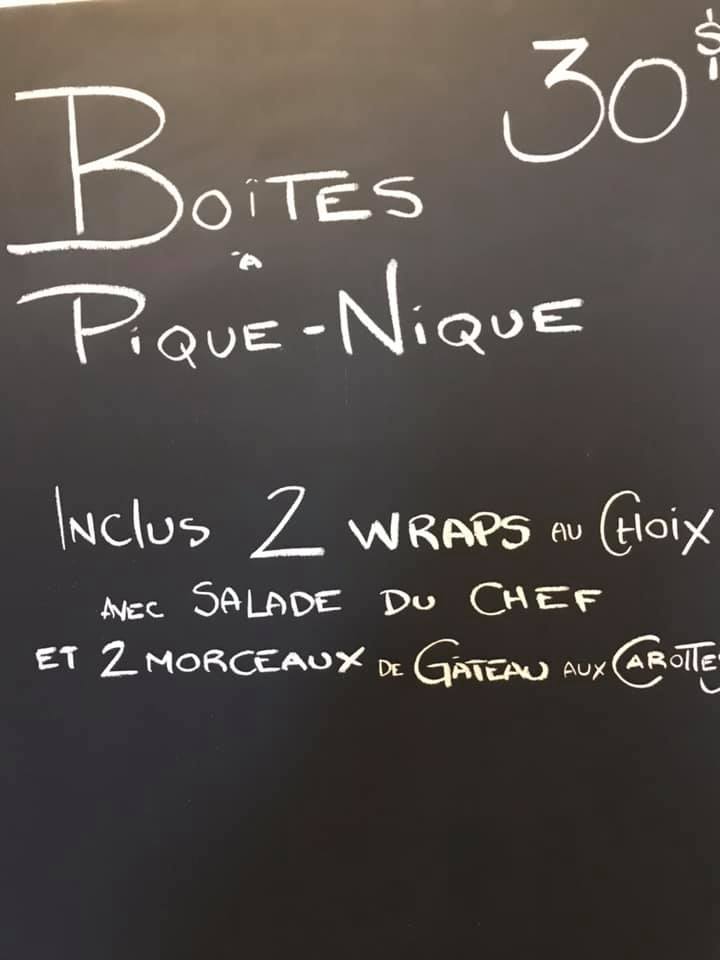 30$
BOîTES
à
PiQUE-NiQUE
INCLUS 2 WRAPS AU CHOiX
AVEC SALADE DU CHEF
ET 2 MORCEAUX DE GÂTEAU AUX CAROTTES